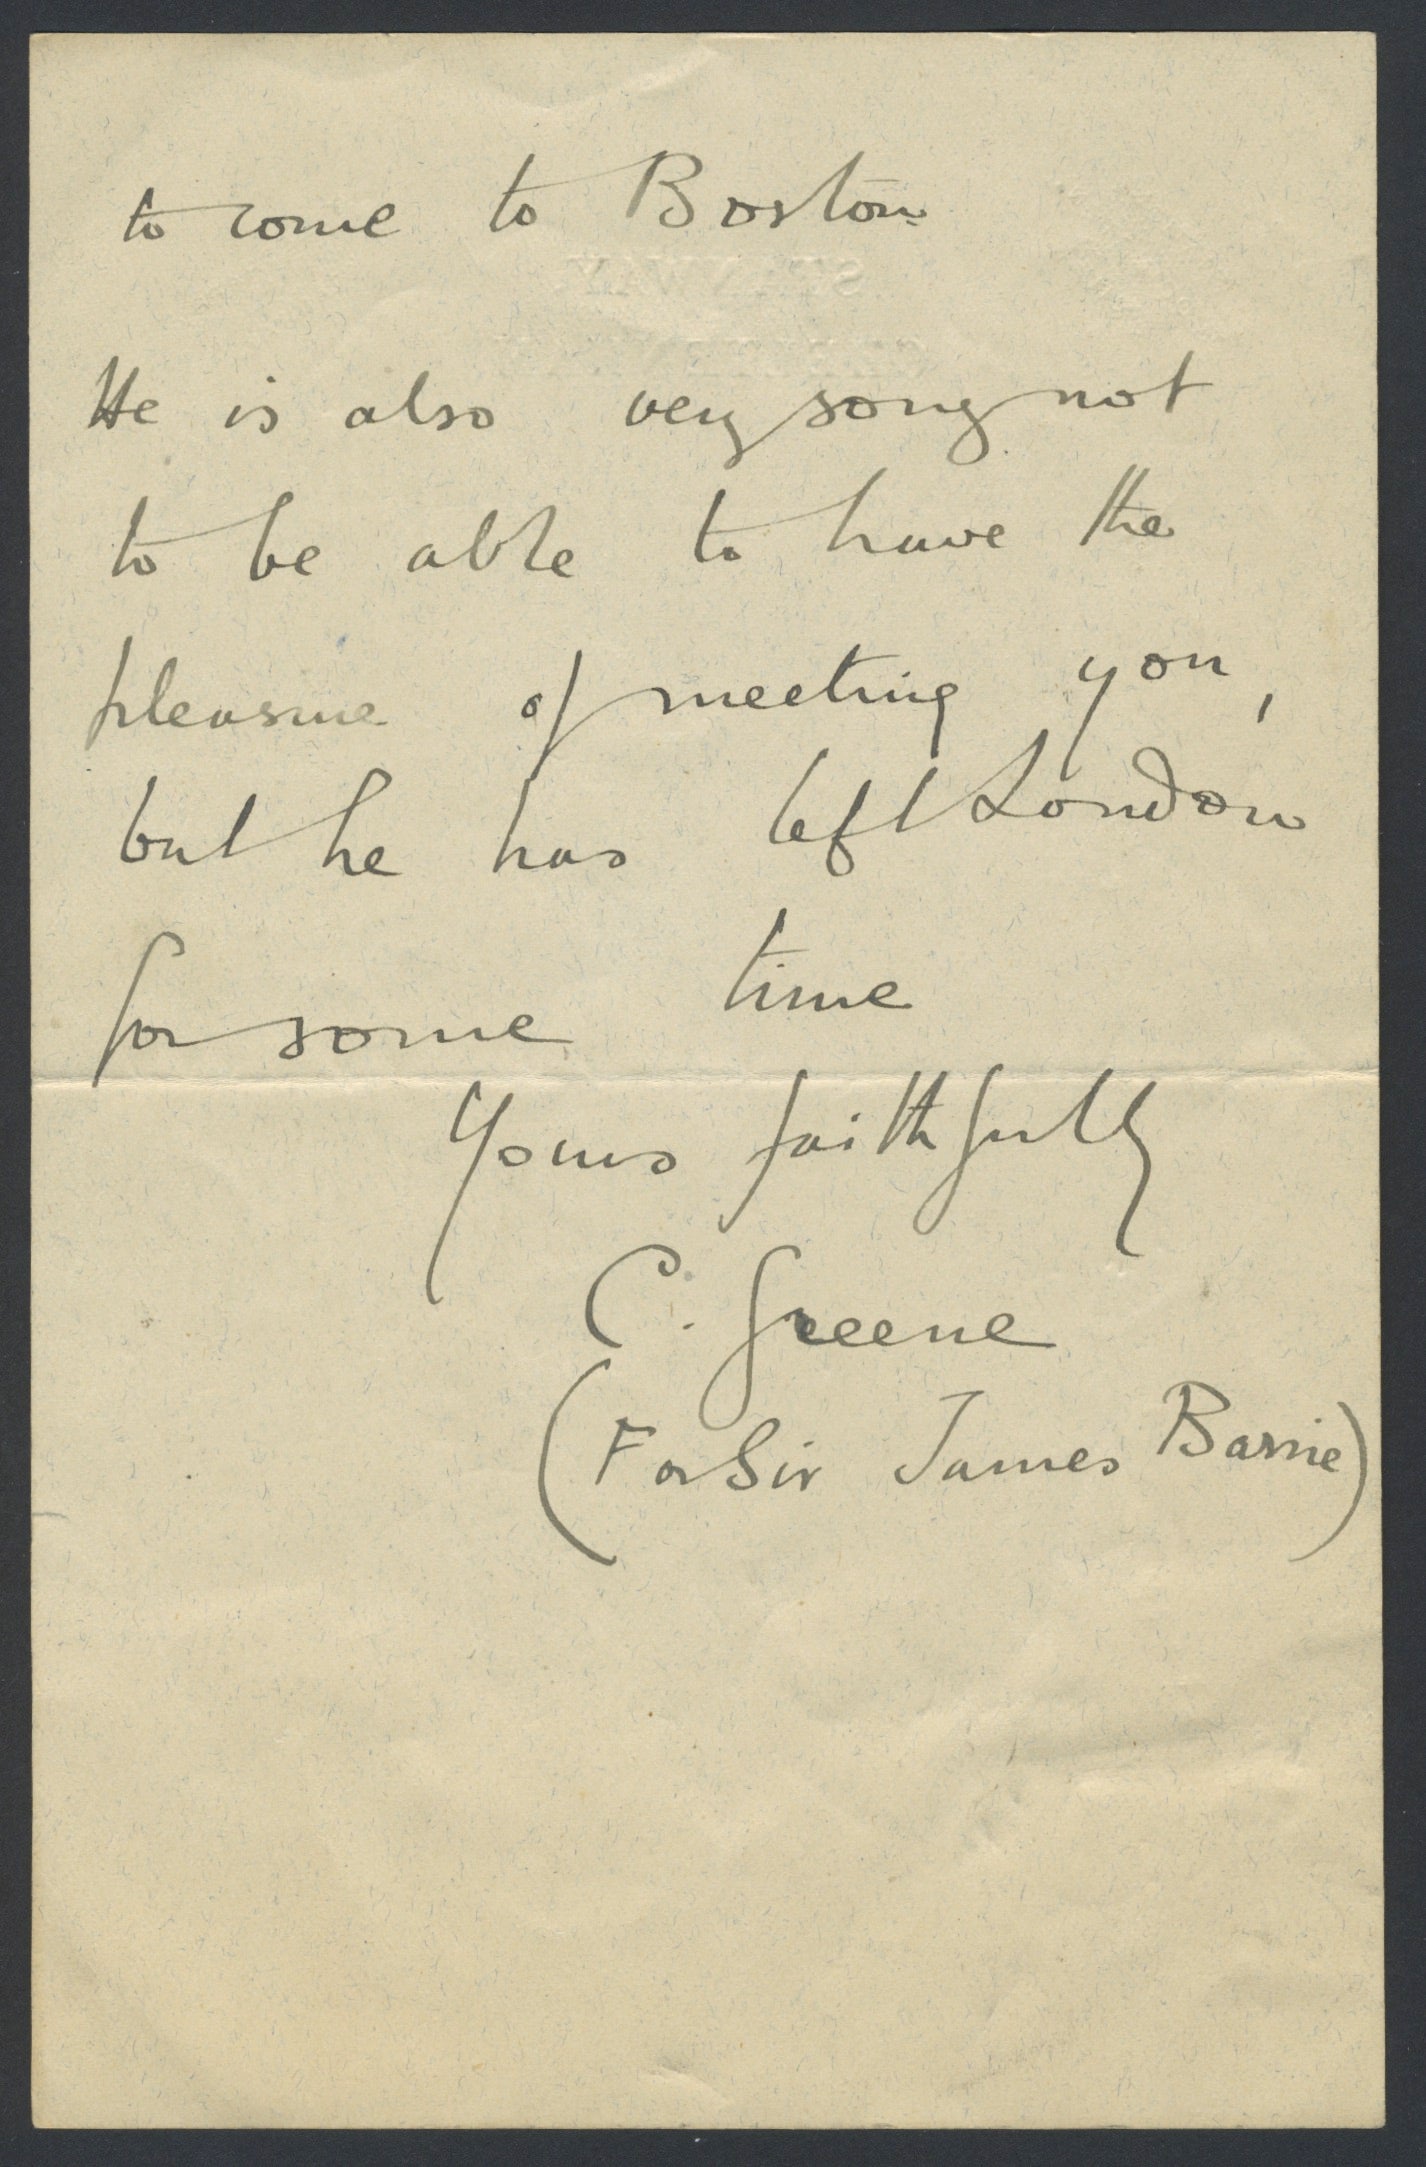 to come to Boston.
He is also very sorry not
to be able to have the
pleasure of meeting you,
but he has left London
for some time
Yours faithfully
C. Greene
(For Sir James Barrie)